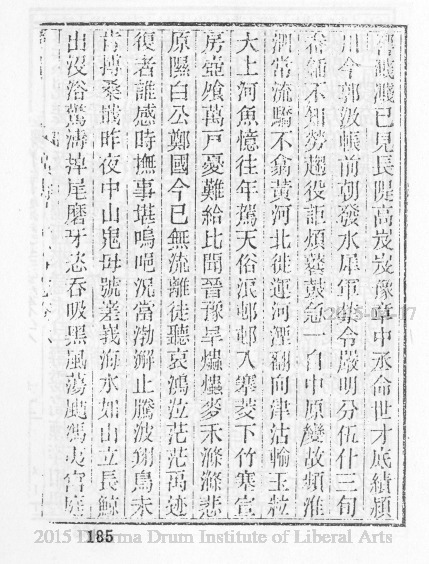 濺濺已見長隄高岌岌豫章中丞命世才底績潁
川今郭汲帳前朝發水犀軍禁令嚴明分伍什三旬
畚鍤不知勞趨役詎煩鼛鼓急一自中原變故頻淮
泗常流驕不翕黃河北徙運河湮翻向津沽輸玉粒
大上河魚憶往年駕天俗浪邨邨入搴茭下竹塞宣
房壺飧萬戶憂難給比聞晉豫旱爞爞麥禾滌滌悲
原隰白公鄭國今已無流離徒聽哀鴻泣茫茫禹迹
復者誰感時撫事堪嗚唈況當渤澥止騰波翔鳥未
肯摶桑戢昨夜中山鬼母號嵳峩海水如山立長鯨
出沒浴驚濤掉尾磨牙恣吞吸黑風蕩颭馮夷宮庭
2015-04-17
2015 Dharma Drum Institute of Liberal Arts
185